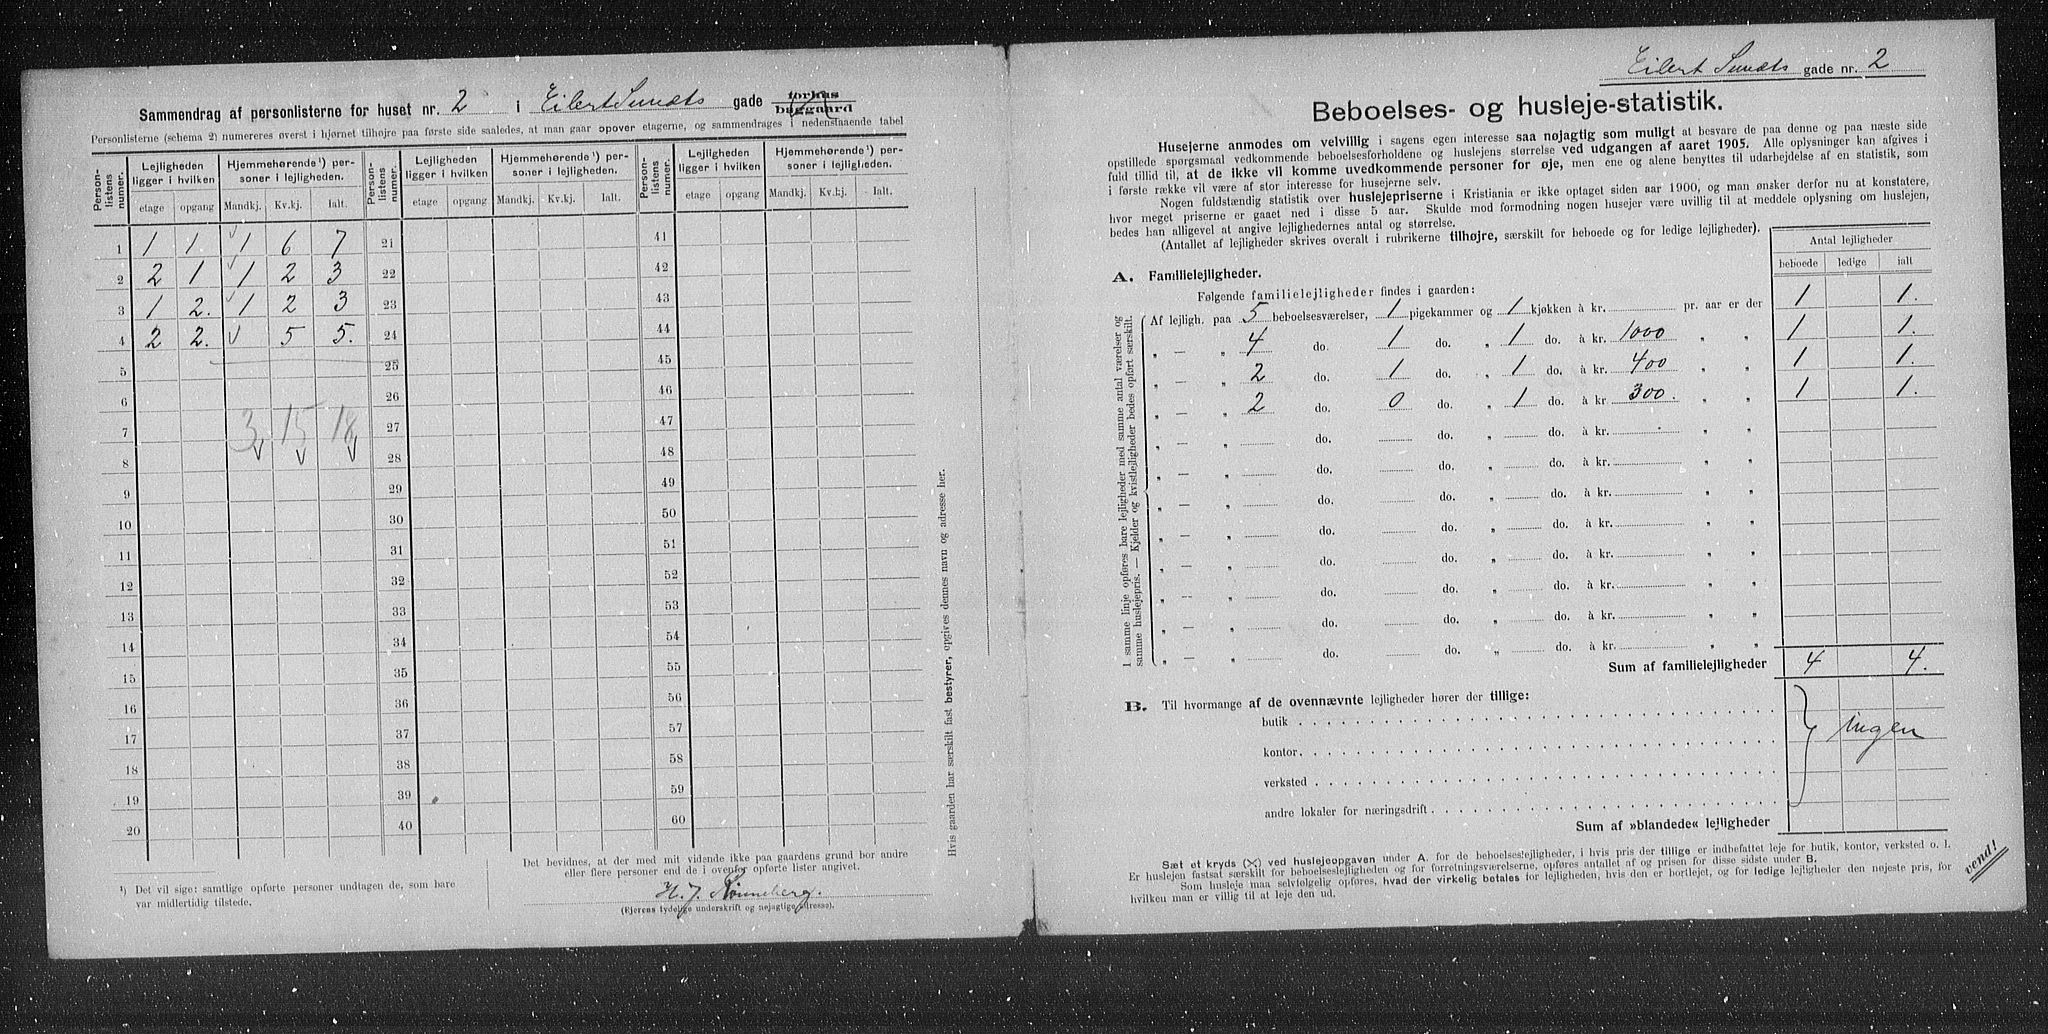 Sammendrag af personlisterne for huset nr. 2 i Eilert Sundts gade forhus baggaard
Personlisterne (schema 2) numereres øverst i hjørnet tilhøjre paa første side saaledes, at man gaar opover etagerne, og sammendrages i nedenstaaende tabel
Personlistens numer. Lejligheden ligger i hvilken Hjemmehørende¹) personer i lejligheden. Personlistens numer. Lejligheden ligger i hvilken Hjemmehørende¹) personer i lejligheden. Personlistens numer. Lejligheden ligger i hvilken Hjemmehørende¹) personer i lejligheden.
etage opgang Mandkj. Kv.kj. Ialt. etage opgang Mandkj. Kv.kj. Ialt. etage opgang Mandkj. Kv.kj. Ialt.
1 1 1 1 6 7 21 41
2 2 1 1 2 3 22 42
3 1 2. 1 2 3 23 43
4 2 2. 5 5. 24 44
5 25 45
6 26 46
7 3 15 18 27 47
8 28 48
9 29 49
10 30 50
11 31 51
12 32 52
13 33 53
14 34 54
15 35 55
16 36 56
17 37 57
18 38 58
19 39 59
20 40 60
¹) Det vil sige: samtlige opførte personer undtagen de, som bare
var midlertidig tilstede.
Det bevidnes, at der med mit vidende ikke paa gaardens grund bor andre
eller flere personer end de i ovenfor opførte lister angivet.
H. J.
(Ejerens tydelige underskrift og nøjagtige adresse).
Hvis gaarden har særskilt fast bestyrer, opgives dennes navn og adresse her.
Eilert Sundts gade nr. 2
Beboelses- og husleje-statistik.
Husejerne anmodes om velvillig i sagens egen interesse saa nøjagtig som muligt at besvare de paa denne og paa næste side
opstillede spørgsmaal vedkommende beboelsesforholdene og huslejens størrelse ved udgangen af aaret 1905. Alle oplysninger kan afgives i
fuld tillid til, at de ikke vil komme uvedkommende personer for øje, men ene og alene benyttes til udarbejdelse af en statistik, som
i første række vil være af stor interesse for husejerne selv.
Nogen fuldstændig statistik over huslejepriserne i Kristiania er ikke optaget siden aar 1900, og man ønsker derfor nu at konstatere,
hvor meget priserne er gaaet ned i disse 5 aar. Skulde mod formodning nogen husejer være uvillig til at meddele oplysning om huslejen,
bedes han alligevel at angive lejlighedernes antal og størrelse.
(Antallet af lejligheder skrives overalt i rubrikerne tilhøjre, særskilt for beboede og for ledige lejligheder).
Antal lejligheder
beboede ledige ialt
A. Familielejligheder.
Følgende familielejligheder findes i gaarden:
Af lejligh. paa 5 beboelsesværelser, 1 pigekammer og 1 kjøkken à kr. pr. aar er der 1 1.
„ — „ 4 do. 1 do. „ 1 do. à kr. 1000 „ „ 1 1.
„ — „ 2 do. 1 do. „ 1 do. à kr. 400 „ „ 1 1.
„ — „ 2 do. 0 do. „ 1 do. à kr. 300. „ „ 1 1.
„ — „ do. do. „ do. à kr. „ „
„ — „ do. do. „ do. à kr. „ „
„ — „ do. do. „ do. à kr. „ „
„ — „ do. do. „ do. à kr. „ „
„ — „ do. do. „ do. à kr. „ „
„ — „ do. do. „ do. à kr. „ „
„ — „ do. do. „ do. à kr. „ „
„ — „ do. do. „ do. à kr. „ „
I samme linje opføres bare lejligheder med samme antal værelser og
samme huslejepris. — Kjelder og kvistlejligheder bedes opført særskilt.
Sum af familielejligheder 4 4.
B. Til hvormange af de ovennævnte lejligheder hører der tillige:
butik
kontor
ingen
verksted
andre lokaler for næringsdrift
Sum af »blandede« lejligheder
Sæt et kryds (×) ved huslejeopgaven under A. for de beboelseslejligheder, i hvis pris der tillige er indbefattet leje for butik, kontor, verksted o. l.
Er huslejen fastsat særskilt for beboelseslejligheden og for forretningsværelserne, opføres antallet af og prisen for disse sidste under B.
Som husleje maa selvfølgelig opføres, hvad der virkelig betales for lejligheden, hvis den er bortlejet, og for ledige lejligheder den nøjeste pris, for
hvilken man er villig til at leje den ud.
vend!